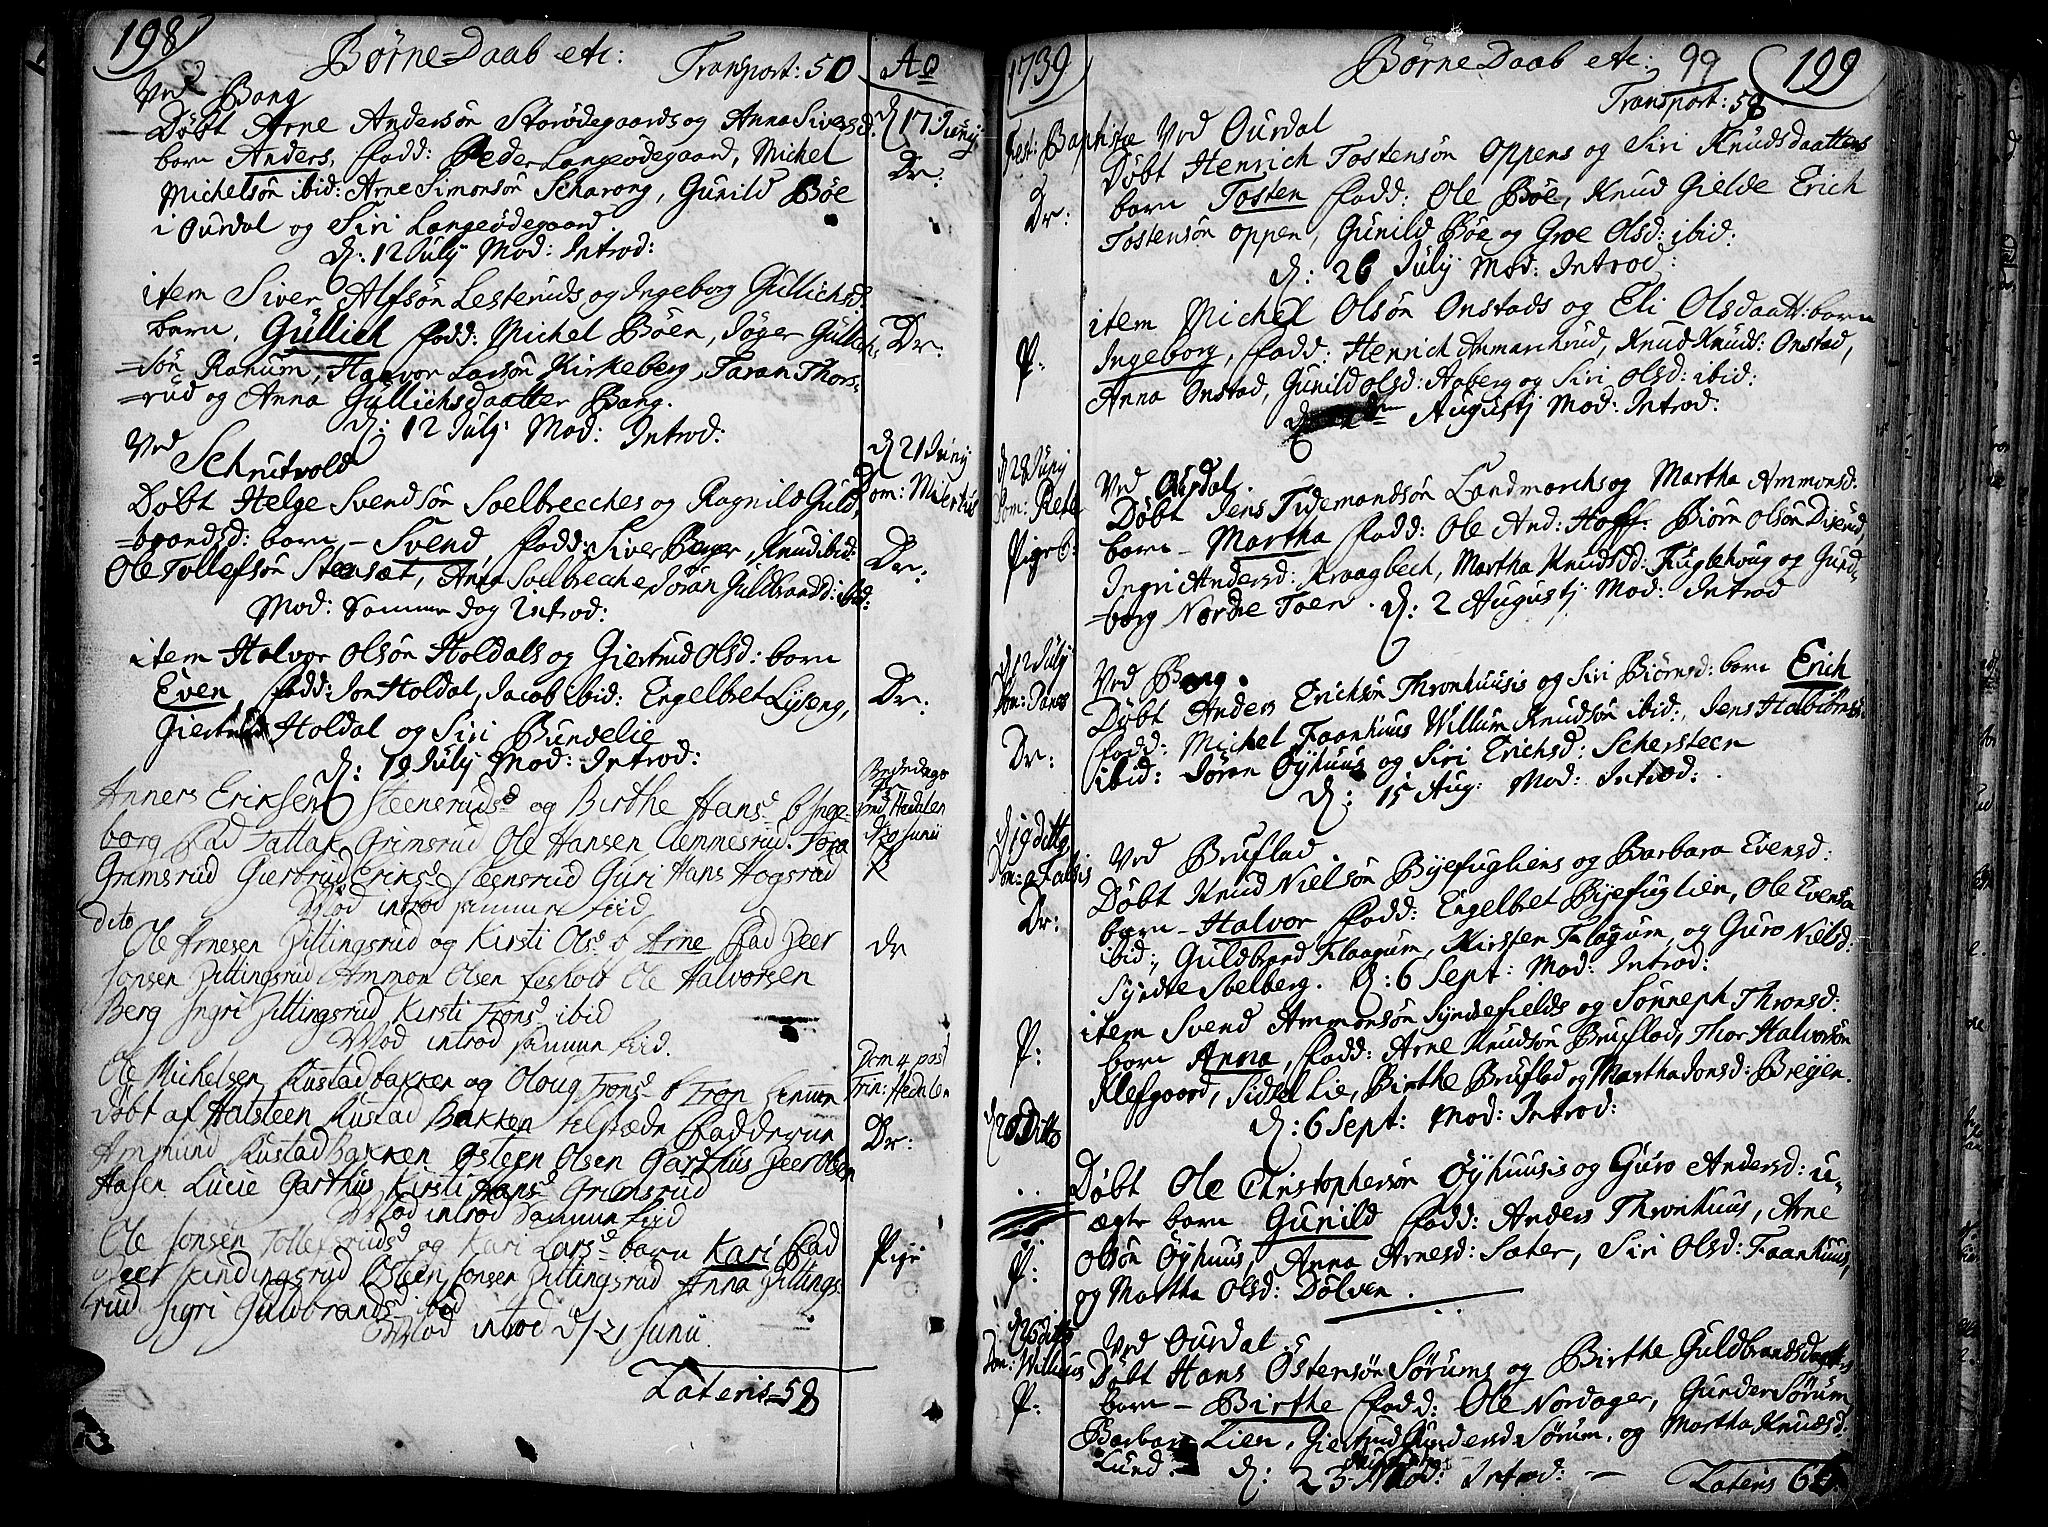 198
Børne-Daab etc: Transport: 50 Ao
Ved Bang
Døbt Arne Andersøn Storødegaards og Anna Sivers d: d 17 Junij
barn Anders, fadd: Peder Langeødegaard, Michel Dr:
Michelsøn ibid: Arne Simonsøn Scharong, Gunild Bøe
i Ourdal og Siri Langeødegaard
d: 12 July Mod: Introd:
item Siver Alfsøn Lesteruds og Ingeborg Gullichsd:
barn, Gullich fadd: Michel Bøen, Jøger Gullich- Dr:
=søn Ranum, Halvor Larsøn Kirkeberg, Taran Thors-
=rud og Anna Gullichsdaatter Bang.
d: 12 July Mod: Introd:
Ved Schrutvold d 21 Junij
Døbt Helge Svendsøn Soelbrecches og Ragnild Guld- Dom: Misertus
=brandsd: barn - Svend, fadd: Siver Beyer, Knud ibid: Dr:
Ole Tollefsøn Steesæt, Anna Soelbrecche, Jøran Guldbrandsd: ibid:
Mod: Samme dag Introd:
item Halvor Olsøn Holdals og Giertrud Olsd: barn
Even fadd: Jon Holdal, Jacob ibid: Engelbret Lyseng, Dr:
Giertrud Holdal og Siri Bundelie
d: 19 July Mod: Introd:
Anners Eriksen Steensruds og Birthe Hansd b Inge-
borg fad Tallak Grimsrud Ole Hansen Clemmesrud. Tora d 20 Junii
Grimsrud Giertrud Eriksd Steensrud Guri Hans Hogsrud
Mod introd samme tiid
dito Ole Arnesen Zittingsrud og Kirsti Olsd b Arne fad Peer dr
Jonsen Zittingsrud Ammon Olsen Ole Halvorsen
Berg Ingri Zittingsrud Kirsti Tronsd ibid
Mod introd samme tiid.
Ole Michelsen Rustadbakken og Oloug Tronsd b Tron hiemme Dom 4 post Trin: Hedalen
døbt af Halsteen Rustad Bakken tilstæde fadderne Dr:
Ammund Rustadbakken Østeen Olsen Garthus Peer Olsen
Hasen Lucie Garthus Kirsti Hansd Grimsrud
Mod introd samme tiid
Ole Jonsen Tollefsruds og Kari Larsd barn Kari fad Pige
Peer Østeen Jonsen Zittingsrud Anna Zittings-
rud Sigri Guldbrandsd ibid
Mod introd d 21 Junii
Lateris 58
1739 Børne Daab etc: 99 199
Transport: 58
Fest: Baptistæ Ved Ourdal
Døbt Henrich Tostensøn Oppens og Siri Knudsdaatters
Dr: barn Tosten fadd: Ole Bøe, Knud Gielde Erich
Tostensøn Oppen, Gunild Bøe og Groe Olsd: ibid:
d: 26 July Mod: Introd:
item Michel Olsøn Onstads og Eli Olsdaatt: barn
P. Ingeborg, fadd: Henrich Anmarchrud, Knud Knuds: Onstad,
Anna Onstad, Gunild Olsd: Aaberg og Siri Olsd: ibid:
Augustj Mod: Introd:
d 28 Junij Ved Ourdal.
Døbt Jens Tidemandsøn Landmarchs og Martha Ammonsd:
Pigeb: barn - Martha fadd: Ole And: Hoff. Biørn Olsøn Disend,
Ingri Andersd: Kraagbech, Martha Knudsd: Fuglehoug og Guld-
=borg Nordre Toen. d: 2 Augustj Mod: Introd
d 12 July Ved Bang.
Døbt Anders Erichsøn Thronhuusis og Siri Biørnsd: barn Erich
Dr: fadd: Michel Faanhuus Willum Knudsøn ibid:, Jens
ibid: Jøran Øyhuus og Siri Erichsd: Schersteen
d: 15 Aug: Mod: Introd:
d 19 ditto Ved Bruflad.
Døbt Knud Nielsøn Byefugliens og Barbara Evensd:
Dr: barn - Halvor fadd: Engelbret Byefuglien, Ole Evensøn
ibid:, Guldbrand Flaagum, Kirsten Flagum, og Guro Nielsd:
Syndre Soelberg. d: 6 Sept: Mod: Introd:
item Svend Ammonsøn Syndrefields og Sønneph Thronsd:
P: barn Anna, fadd: Arne Knudsøn Bruflad, Thor Halvorsøn
Klefgaard, Sidsel Lie, Birthe Bruflad og Martha Jonsd: Breyen.
d: 6 Sept: Mod: Introd:
d 20 Ditto
Døbt Ole Christophersøn Øyhuusis og Guro Andersd: u-
ægte barn Gunild fadd: Anders Thronhuus, Arne
P: Olsøn Øyhuus, Anna Arnesd: Sæter, Siri Olsd: Faanhuus,
og Martha Olsd: Dølven.
d 26 ditto Ved Ourdal
Døbt Hans Østensøn Sørums og Birthe Guldbrandsdaatters
P: barn - Birthe fadd: Ole Nordager, Gunder Sørum,
Barbara Lien, Giertrud Gundersd: Sørum, og Martha Knudsd:
Lund. d: 23 Mod: Introd: - Lateris